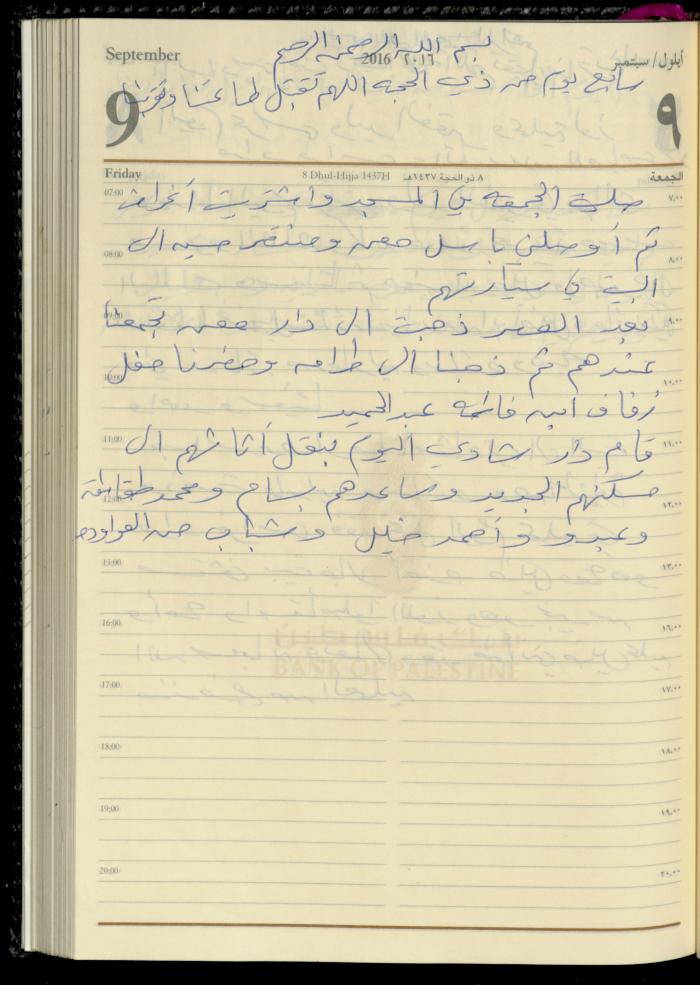 September
أيلول/ سبتمبر
بسم الله الرحمن الرحيم
2016 ٢٠١٦
سابع يوم من ذي الحجه اللهم تقبل طاعتنا وتوبتنا
9
٩
Friday
8 Dhul-Hijja 1437H
٨ ذو الحجة ١٤٣٧هـ
الجمعة
07:00 ٧:٠٠
صلاة الجمعه في المسجد واشتريت أغراض
ثم أوصلني باسل معن ومنتصر حسبه الى
08:00 ٨:٠٠
البيت في سيارتهم
09:00 ٩:٠٠
بعد العصر ذهبت الى دار معن تجمعنا
عندهم ثم ذهبنا الى طرامه وحضرنا حفل
10:00 ١٠:٠٠
زفاف ابن فاطمه عبدالحميد
11:00 ١١:٠٠
قام دار شادي اليوم بنقل أثاثهم الى
مسكنهم الجديد وساعدهم بسام ومحمد طقاطقه
12:00 ١٢:٠٠
وعبد و وأحمد خليل وشباب من العواوده
13:00 ١٣:٠٠
16:00 ١٦:٠٠
BANK OF PALESTINE
17:00 ١٧:٠٠
18:00 ١٨:٠٠
19:00 ١٩:٠٠
20:00 ٢٠:٠٠